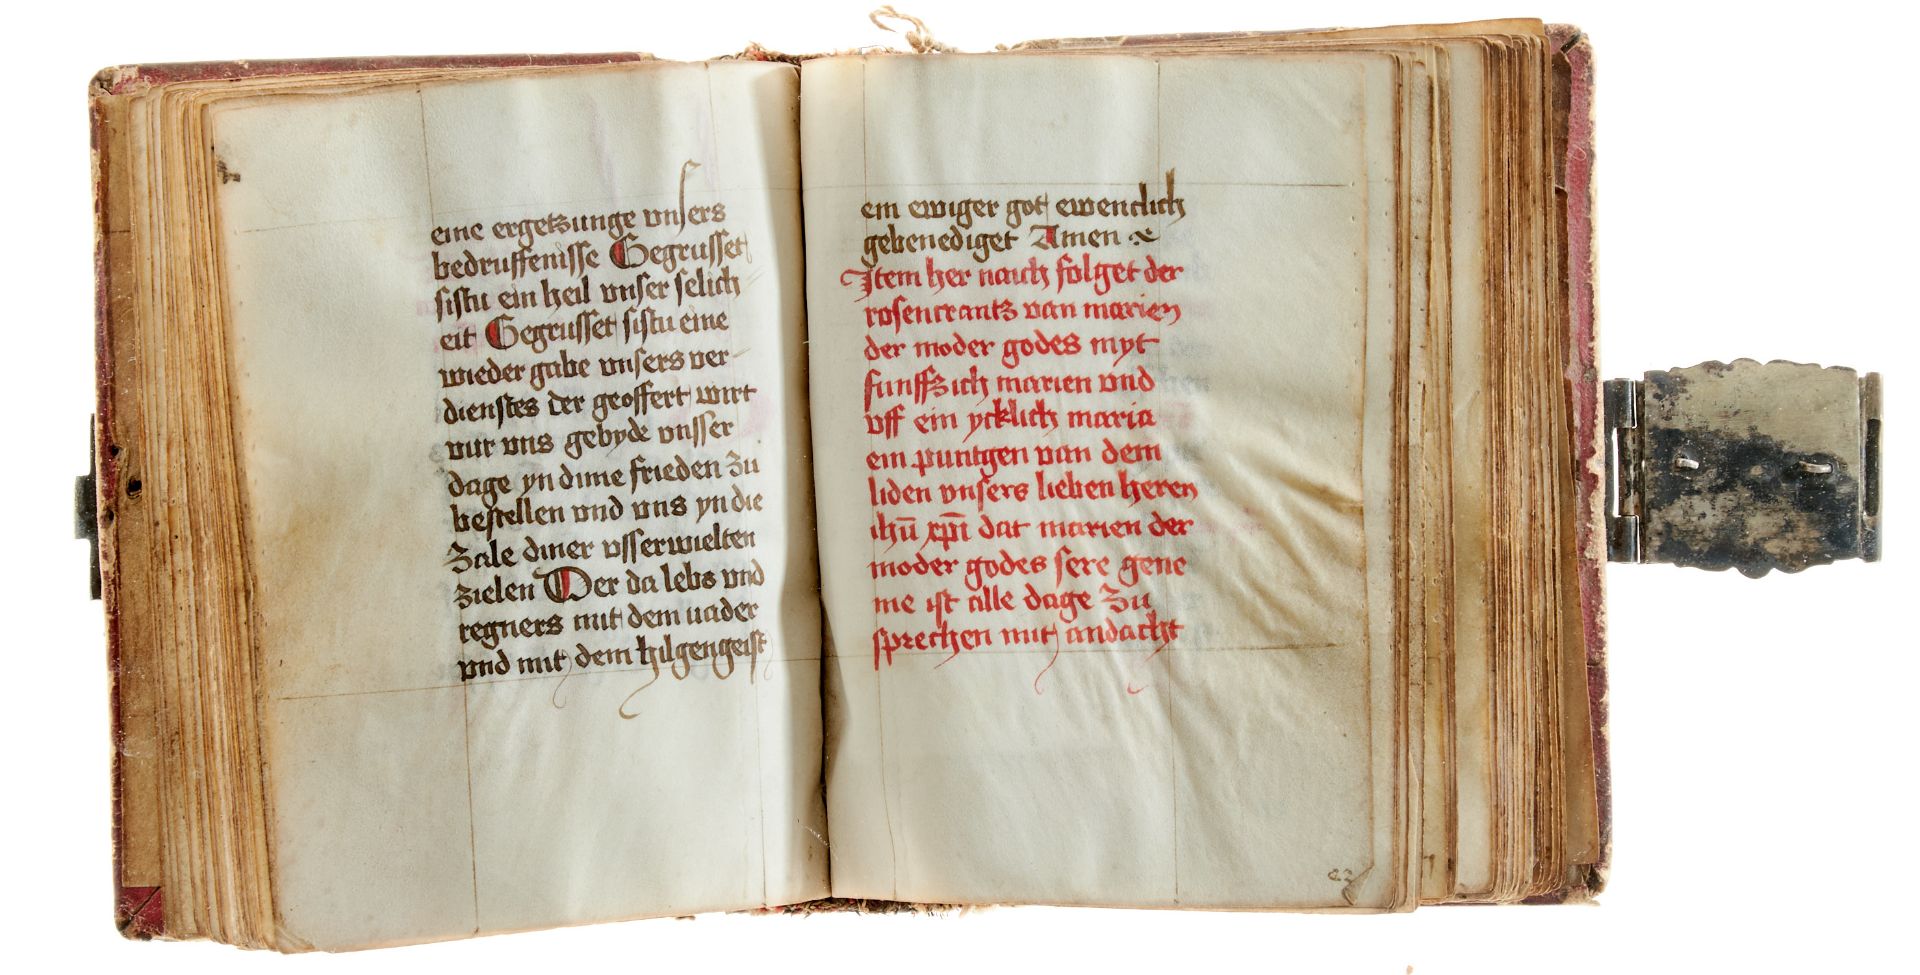 eine ergetzunge vnsers
bedruffenisse Gegrusset
sistu ein heil vnser selich
eit Gegrusset sistu eine
wieder gabe vnsers ver
dienstes der geoffert wirt
vur vns gebyde vnsser
dage yn dine frieden zu
bestellen vnd vns yn die
zale diner vsserwielten
zielen Der da lebs vnd
regners mit dem vader
vnd mit dem hilgengeist
ein ewiger got ewenclich
gebenediget Amen
Item her naich folget der
rosencrantz van marien
der moder godes myt
funffzich marien vnd
vff ein ycklich maria
ein puntgen van dem
liden vnsers lieben heren
ihū xp̄i dat marien der
moder godes sere gene
me ist alle dage zu
sprechen mit andacht